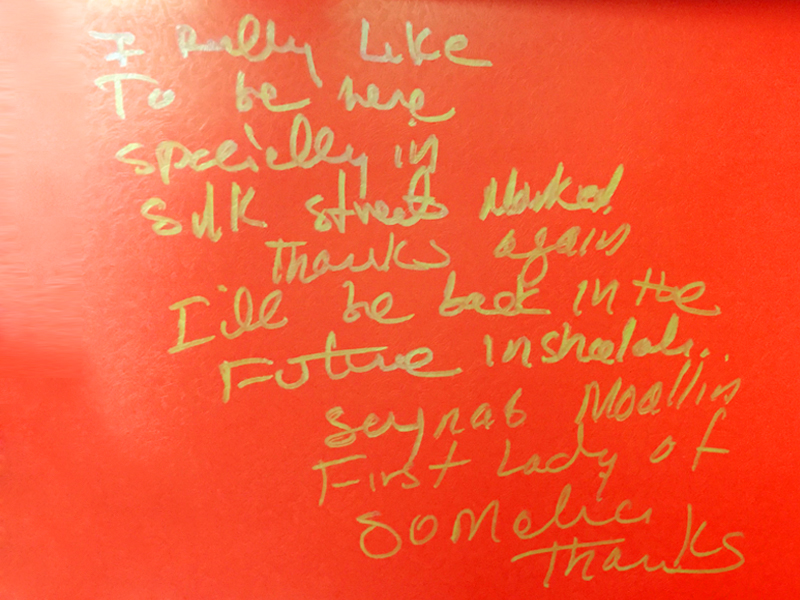 I really Like
To be here
specially in
Silk streets Market
Thanks again
I'll be back in the
Future inshalah..
Seynab Moallin
First Lady of
Somalia
Thanks